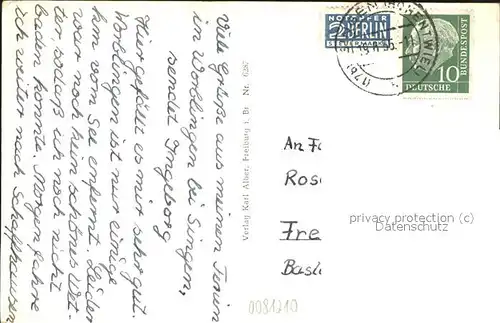 Viele Grüße aus meinen Ferien
in Worblingen bei Singen,
sendet Ingeborg
Hier gefällt es mir sehr gut.
Worblingen ist nur einige
km vom See enfernt. Leider
war noch kein schönes Wet-
ter, sodaß ich noch nicht
baden konnte. Morgen fahre
ich weiter nach Schaffhausen
Verlag Karl Alber, Freiburg i. Br Nr. 6287
NOTOPFER
2 BERLIN
STEUERMARKE
10
DEUTSCHE
BUNDESPOST
An Fa
Ros
Fre
Basl
privacy protection (c)
Datenschutz
0081210